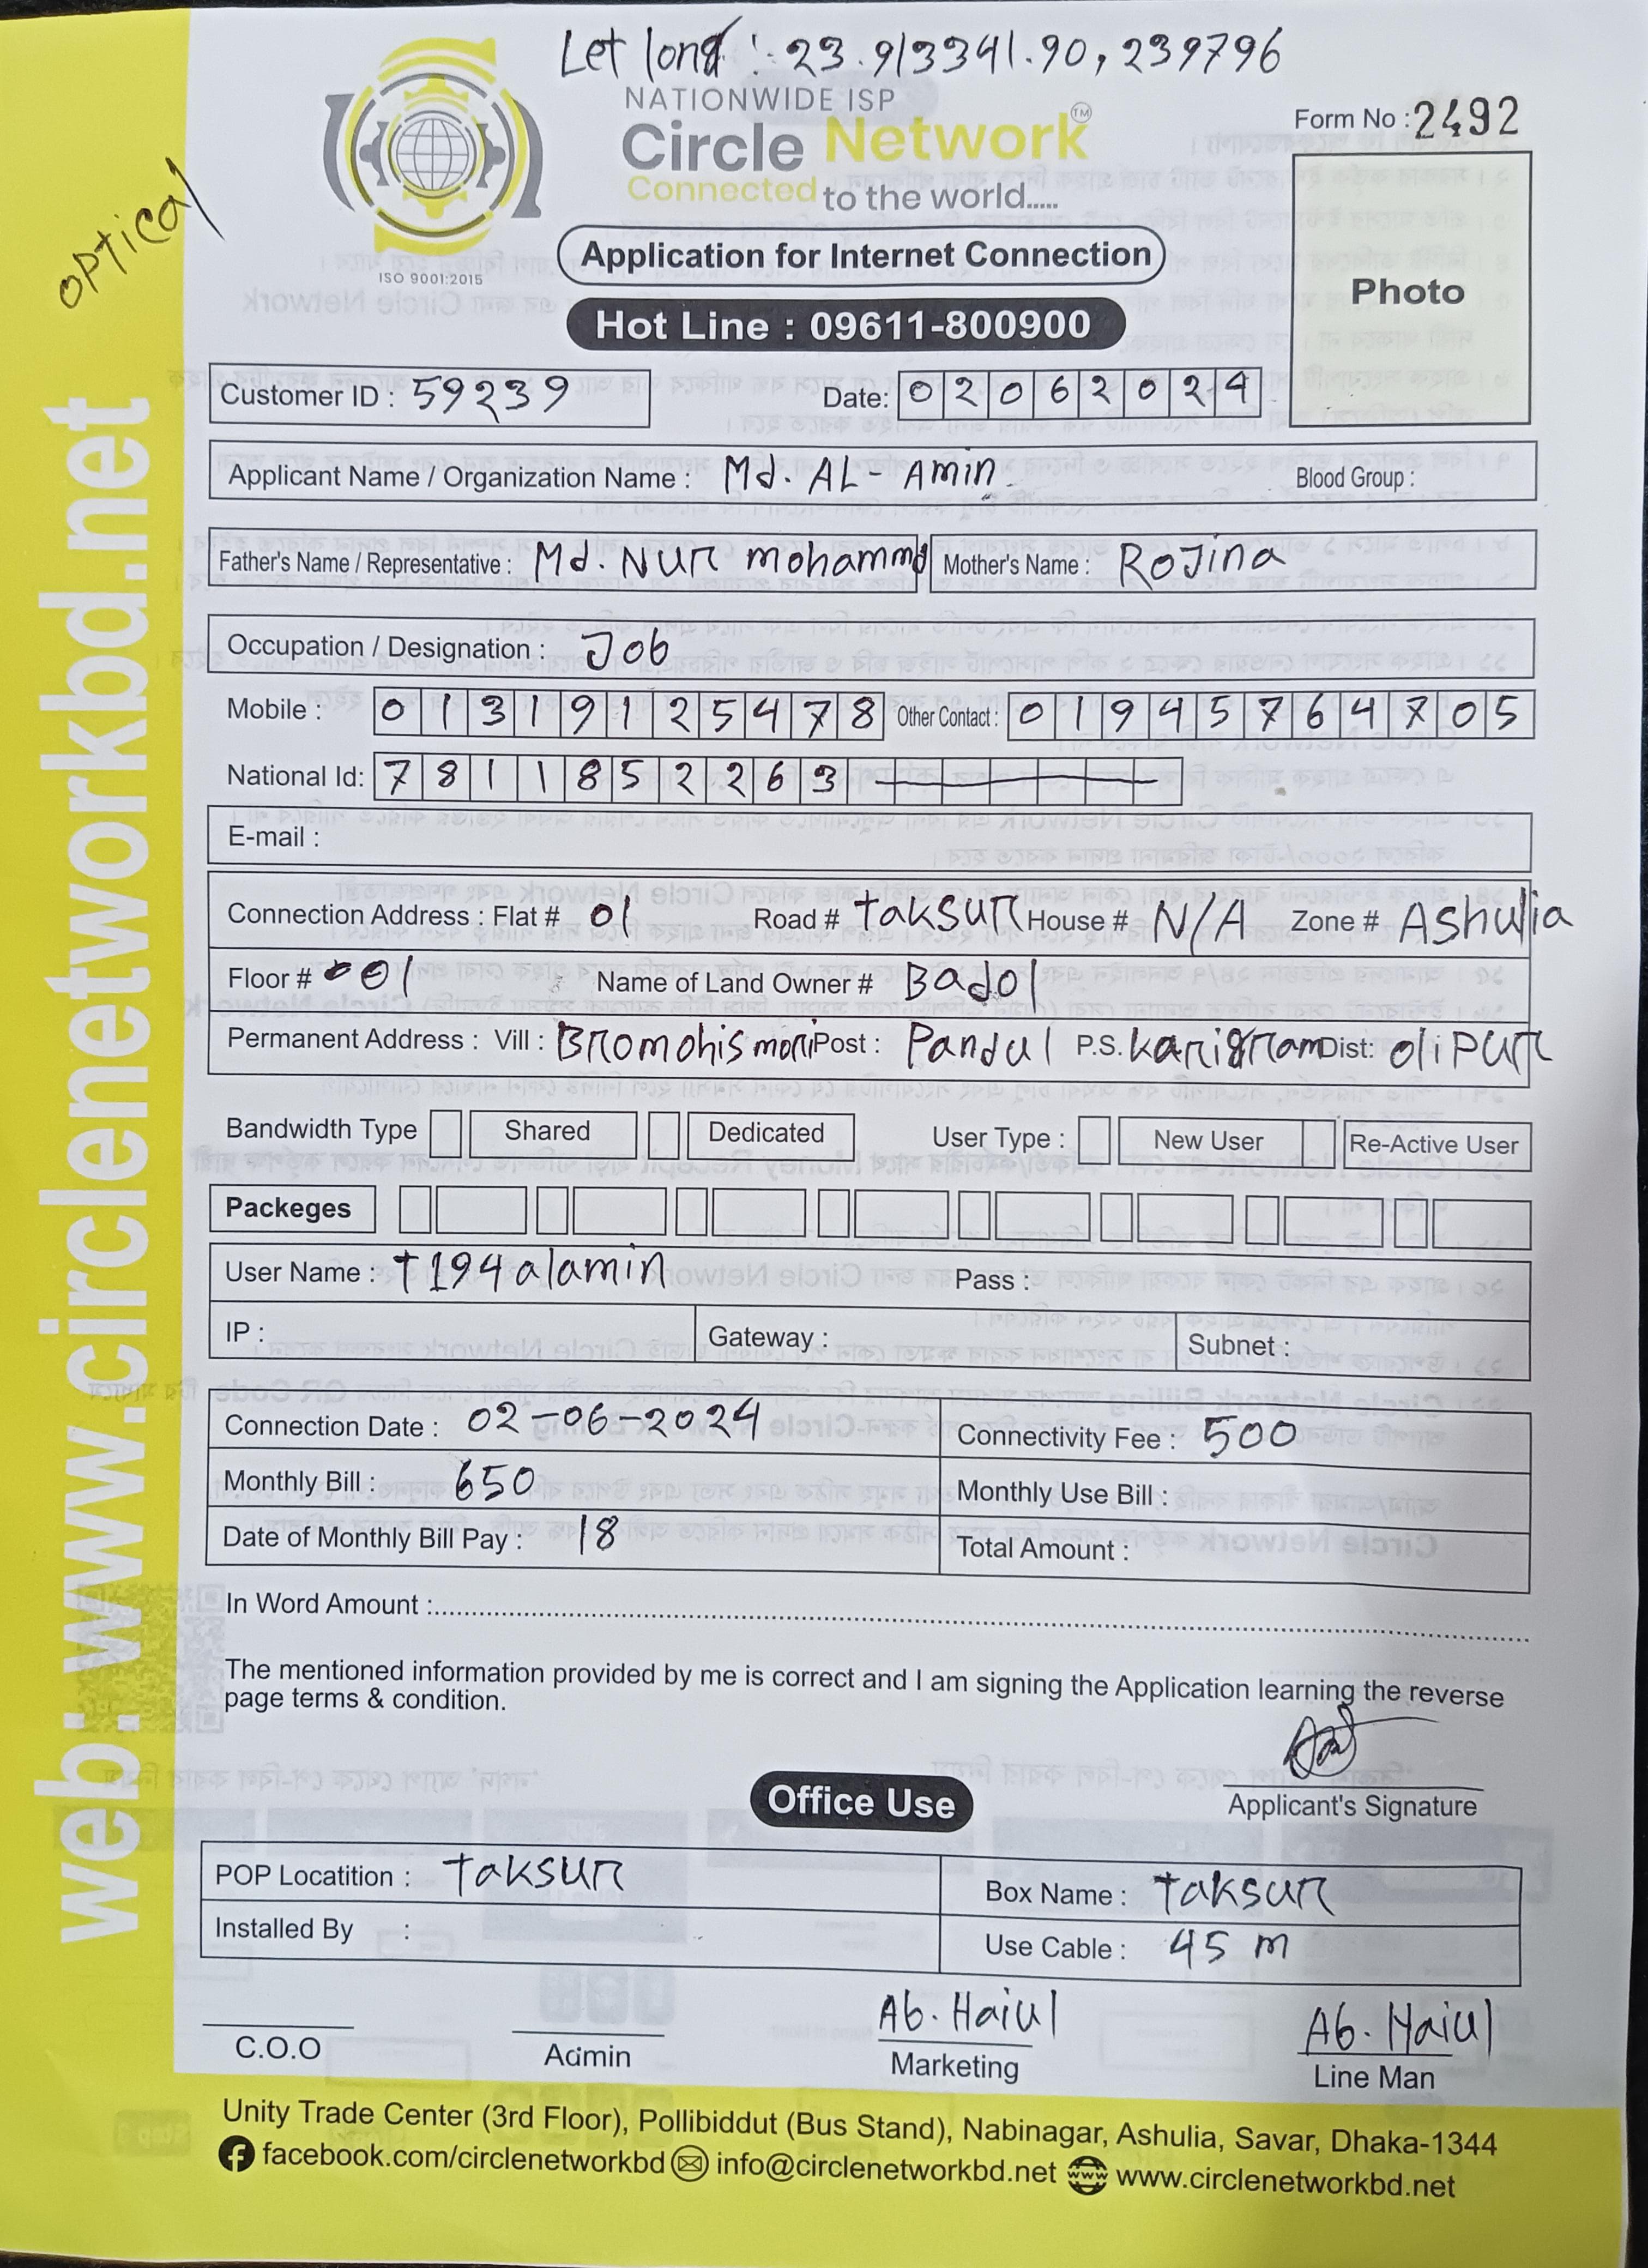 Let long : 23.913341.90,239796
NATIONWIDE ISP
Circle Network TM
Connected to the world.....
Form No : 2492
optical
ISO 9001:2015
Application for Internet Connection
Photo
Hot Line : 09611-800900
Customer ID : 59239 Date: 02062024
Applicant Name / Organization Name : Md. AL-Amin Blood Group :
Father's Name / Representative : Md. NUR mohammd Mother's Name : ROJina
Occupation / Designation : Job
Mobile : 01319125478 Other Contact : 01945764705
National Id: 7811852263
E-mail :
Connection Address : Flat # 01 Road # taksur House # N/A Zone # Ashulia
Floor # 001 Name of Land Owner # Badol
Permanent Address : Vill : Bromohismori Post : Pandul P.S. karigram Dist: oliPur
Bandwidth Type Shared Dedicated User Type : New User Re-Active User
Packeges
User Name : t194alamin Pass :
IP : Gateway : Subnet :
Connection Date : 02-06-2024 Connectivity Fee : 500
Monthly Bill : 650 Monthly Use Bill :
Date of Monthly Bill Pay : 18 Total Amount :
In Word Amount :
The mentioned information provided by me is correct and I am signing the Application learning the reverse
page terms & condition.
Applicant's Signature
Office Use
POP Locatition : taksur Box Name : taksur
Installed By : Use Cable : 45 m
Ab. Haiul Ab. Haiul
C.O.O Admin Marketing Line Man
Unity Trade Center (3rd Floor), Pollibiddut (Bus Stand), Nabinagar, Ashulia, Savar, Dhaka-1344
facebook.com/circlenetworkbd info@circlenetworkbd.net www.circlenetworkbd.net
web: www.circlenetworkbd.net